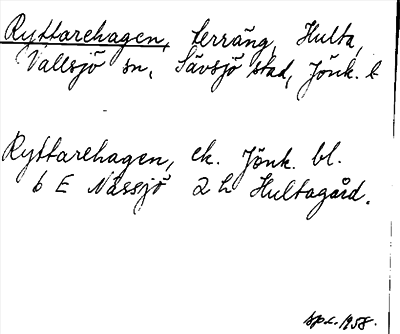 Ryttarehagen, terräng, Hulta,
Vallsjö sn, Sävsjö stad, Jönk. l
Ryttarehagen, ek. Jönk. bl.
6 E Nässjö 2 h Hultagård.
1958.